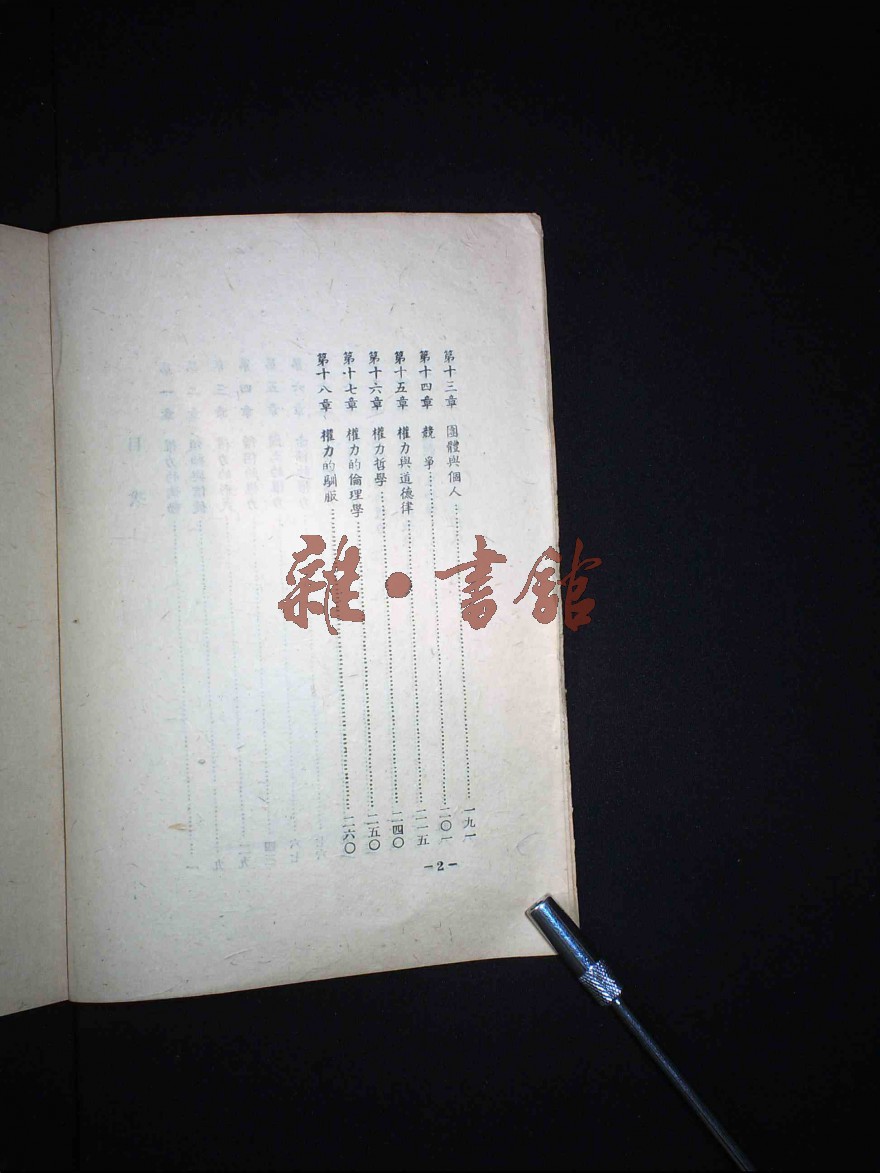 第十三章 團體與個人………一九一
第十四章 競爭………二〇一
第十五章 權力與道德律………二一五
第十六章 權力哲學………二四〇
第十七章 權力的倫理學………二五〇
第十八章 權力的馴服………二六〇
－2－
雜·書館